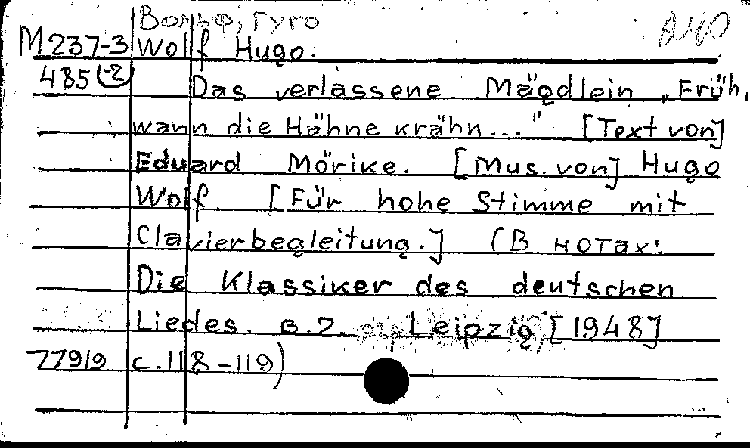 Вольф, Гуго
М 237-3 Wolf Hugo.
485 (-2) Das verlassene Mägdlein „Früh,
wann die Hähne krähn..." [Text von]
Eduard Mörike. [Mus. von] Hugo
Wolf [Für hohe Stimme mit
Clavierbegleitung.] (В нотах:
Die Klassiker des deutschen
Liedes. B. 2. Leipzig [1948]
779/9 с. 118-119)